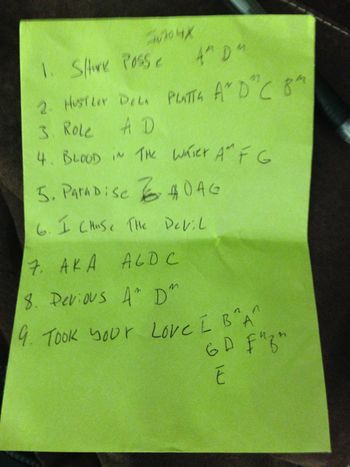 1. SHARK POSSE Aᵐ Dᵐ
2. HUSTLER DELA PLATTA Aᵐ Dᵐ C Bᵐ
3. ROLE A D
4. BLOOD IN THE WATER Aᵐ F G
5. PARADISE A D A G
6. I CHOSE THE DEVIL
7. AKA A G D C
8. DEVIOUS Aᵐ Dᵐ
9. TOOK YOUR LOVE E Bᵐ Aᵐ
G D Fᵐ Bᵐ
E